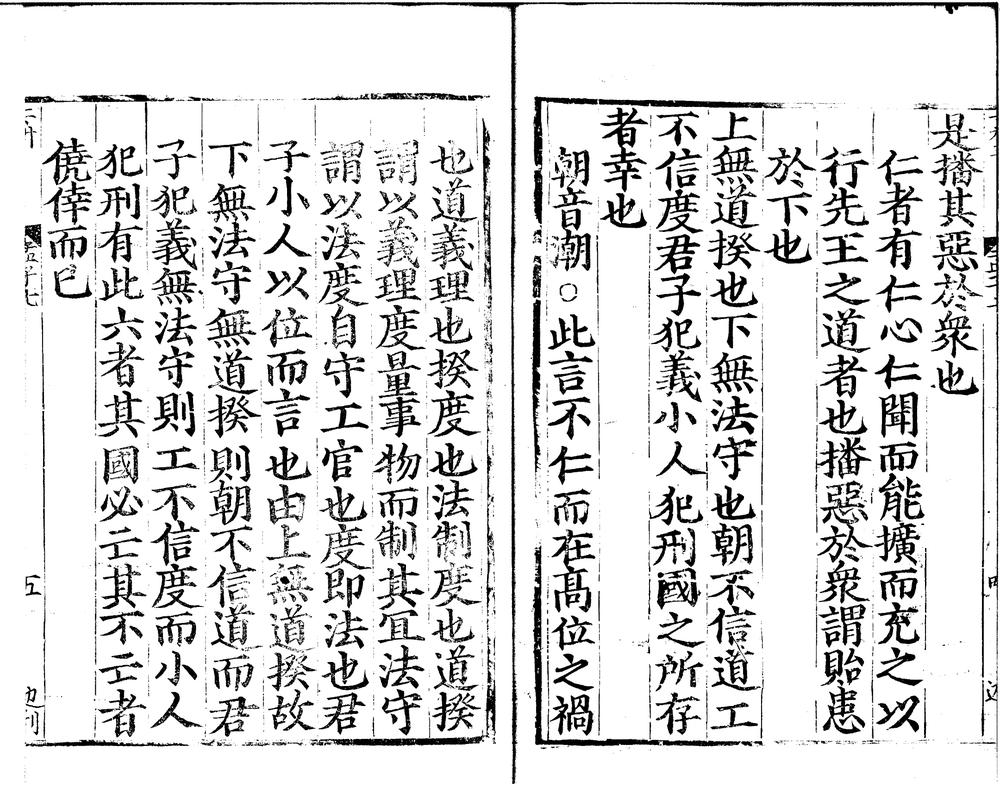 是播其惡於衆也
仁者有仁心仁聞而能擴而充之以
行先王之道者也播惡於衆謂貽患
於下也
上無道揆也下無法守也朝不信道工
不信度君子犯義小人犯刑國之所存
者幸也
朝音潮○此言不仁而在髙位之禍
也道義理也揆度也法制度也道揆
謂以義理度量事物而制其宜法守
謂以法度自守工官也度即法也君
子小人以位而言也由上無道揆故
下無法守無道揆則朝不信道而君
子犯義無法守則工不信度而小人
犯刑有此六者其國必亡其不亡者
僥倖而已
孟子七
五